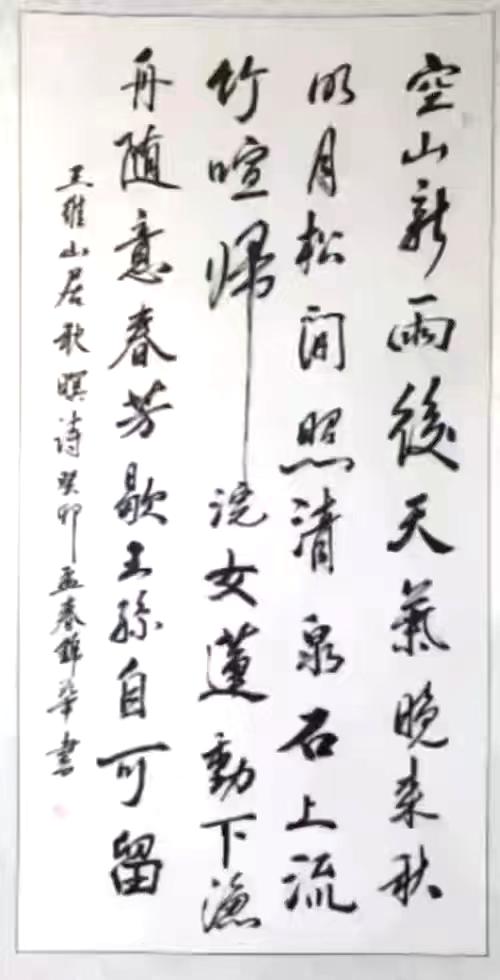 空山新雨後天氣晚来秋
明月松间照清泉石上流
竹喧帰浣女蓮動下漁
舟随意春芳歇王孫自可留
王維山居秋暝诗癸卯孟春錦華書